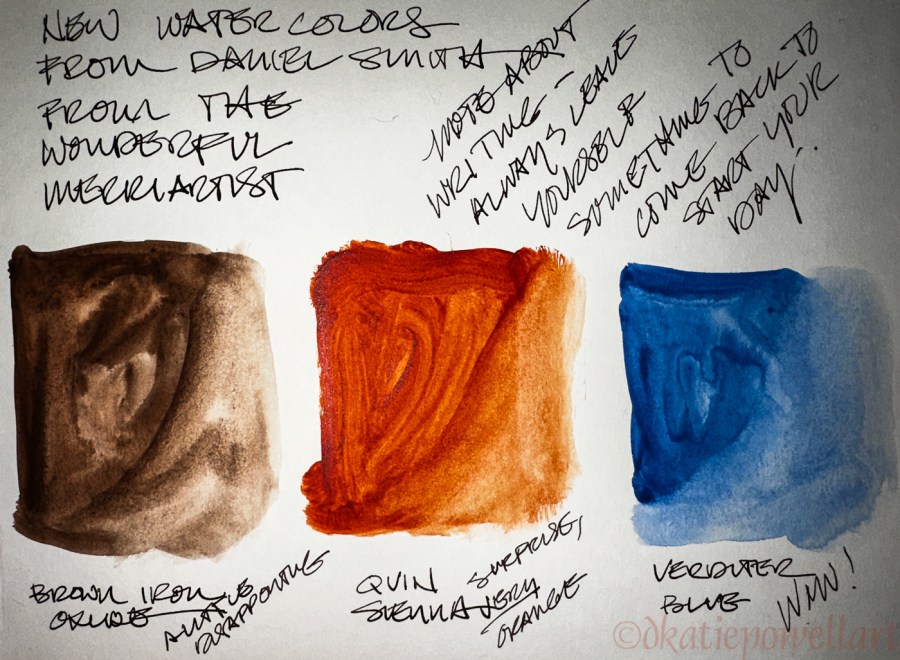 NEW WATERCOLORS
FROM DANIEL SMITH
FROM THE
WONDERFUL
MERRIARTIST
NOTE ABOUT
WRITING —
ALWAYS LEAVE
YOURSELF
SOMETHING TO
COME BACK TO
START YOUR
DAY...
BROWN IRON
OXIDE
A LITTLE
DISAPPOINTING
QUIN
SIENNA
SURPRISE,
VERY
ORANGE
VERDITER
BLUE
WIN!
©dkatiepowellart